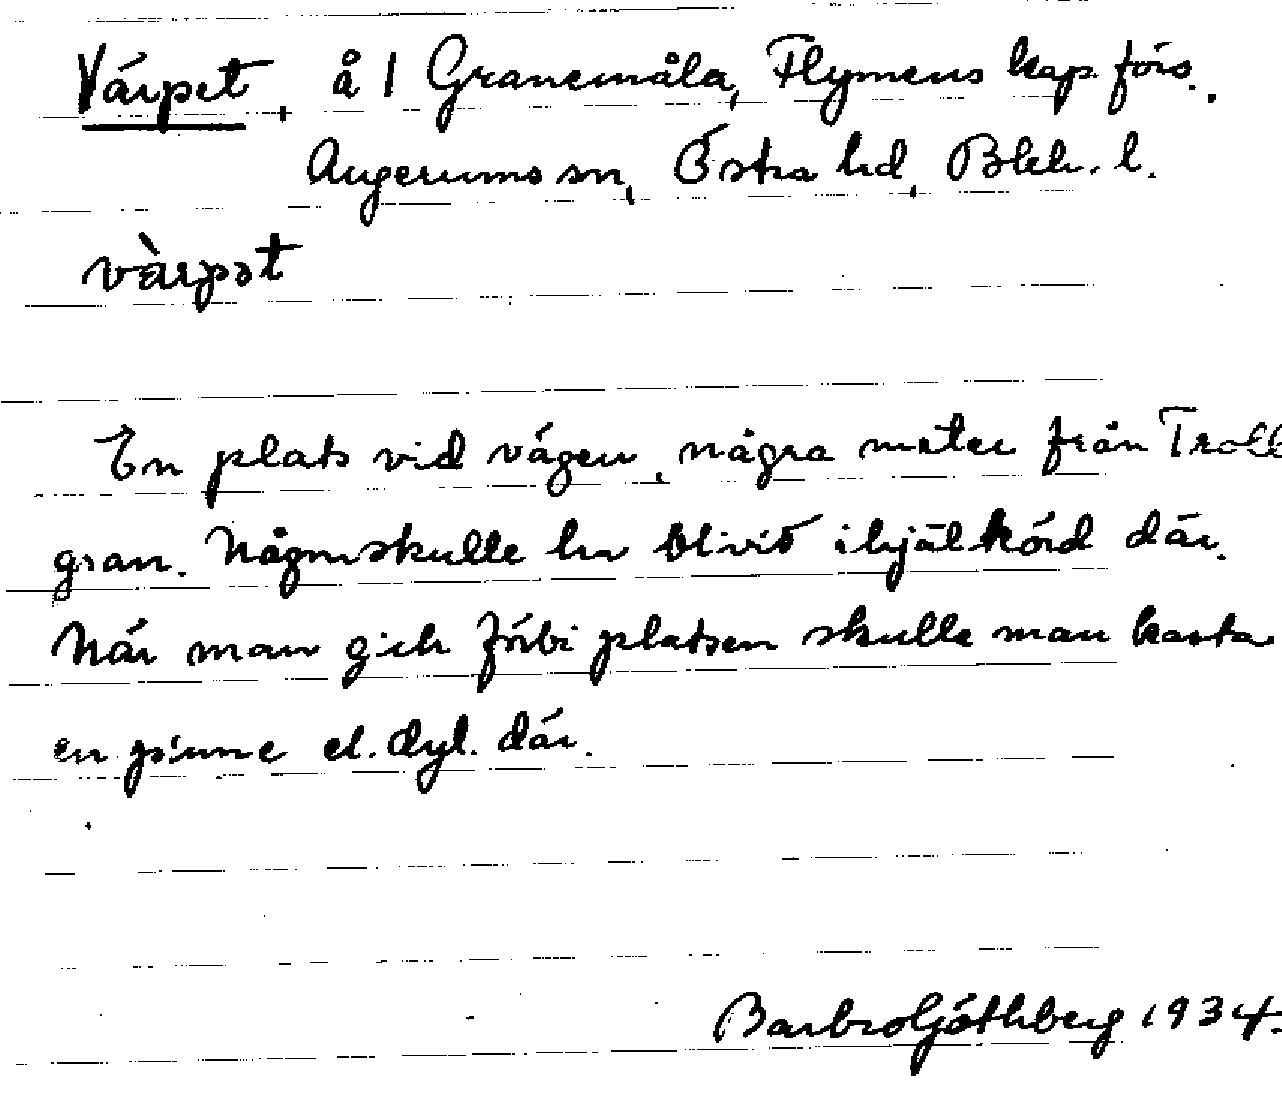 Värpet, å 1 Granemåla, Flymens kap. förs.,
Augerums sn, Östra hd, Blek. l.
vàrpət
En plats vid vägen, några meter från Troll
gran. Någon skulle ha blivit ihjälkörd där.
När man gick förbi platsen skulle man kasta
en pinne el. dyl. där.
Barbro Göthberg 1934.